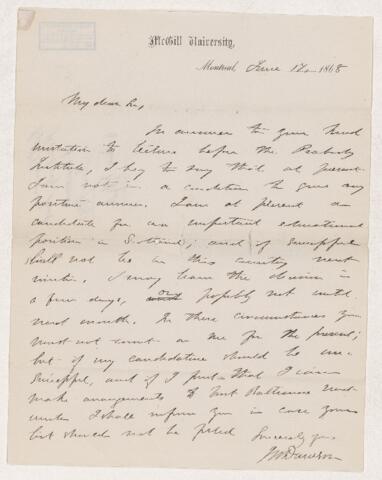 McGill University,
Montreal, June 12 1868
My dear Sir,
In answer to your kind
invitation to lecture before the Peabody
Institute, I beg to say that at present
I am not in a condition to give any
positive answer. I am at present a
candidate for an important educational
position in Scotland; and if successful
shall not be in this country next
winter. I may learn the decision in
a few days, or possibly not until
next month. In these circumstances you
must not count on me for the present;
but if my candidature should be un-
successful, and if I find that I can
make arrangements to visit Baltimore next
winter I shall inform you in case your
list should not be filled
Sincerely yours
JW Dawson